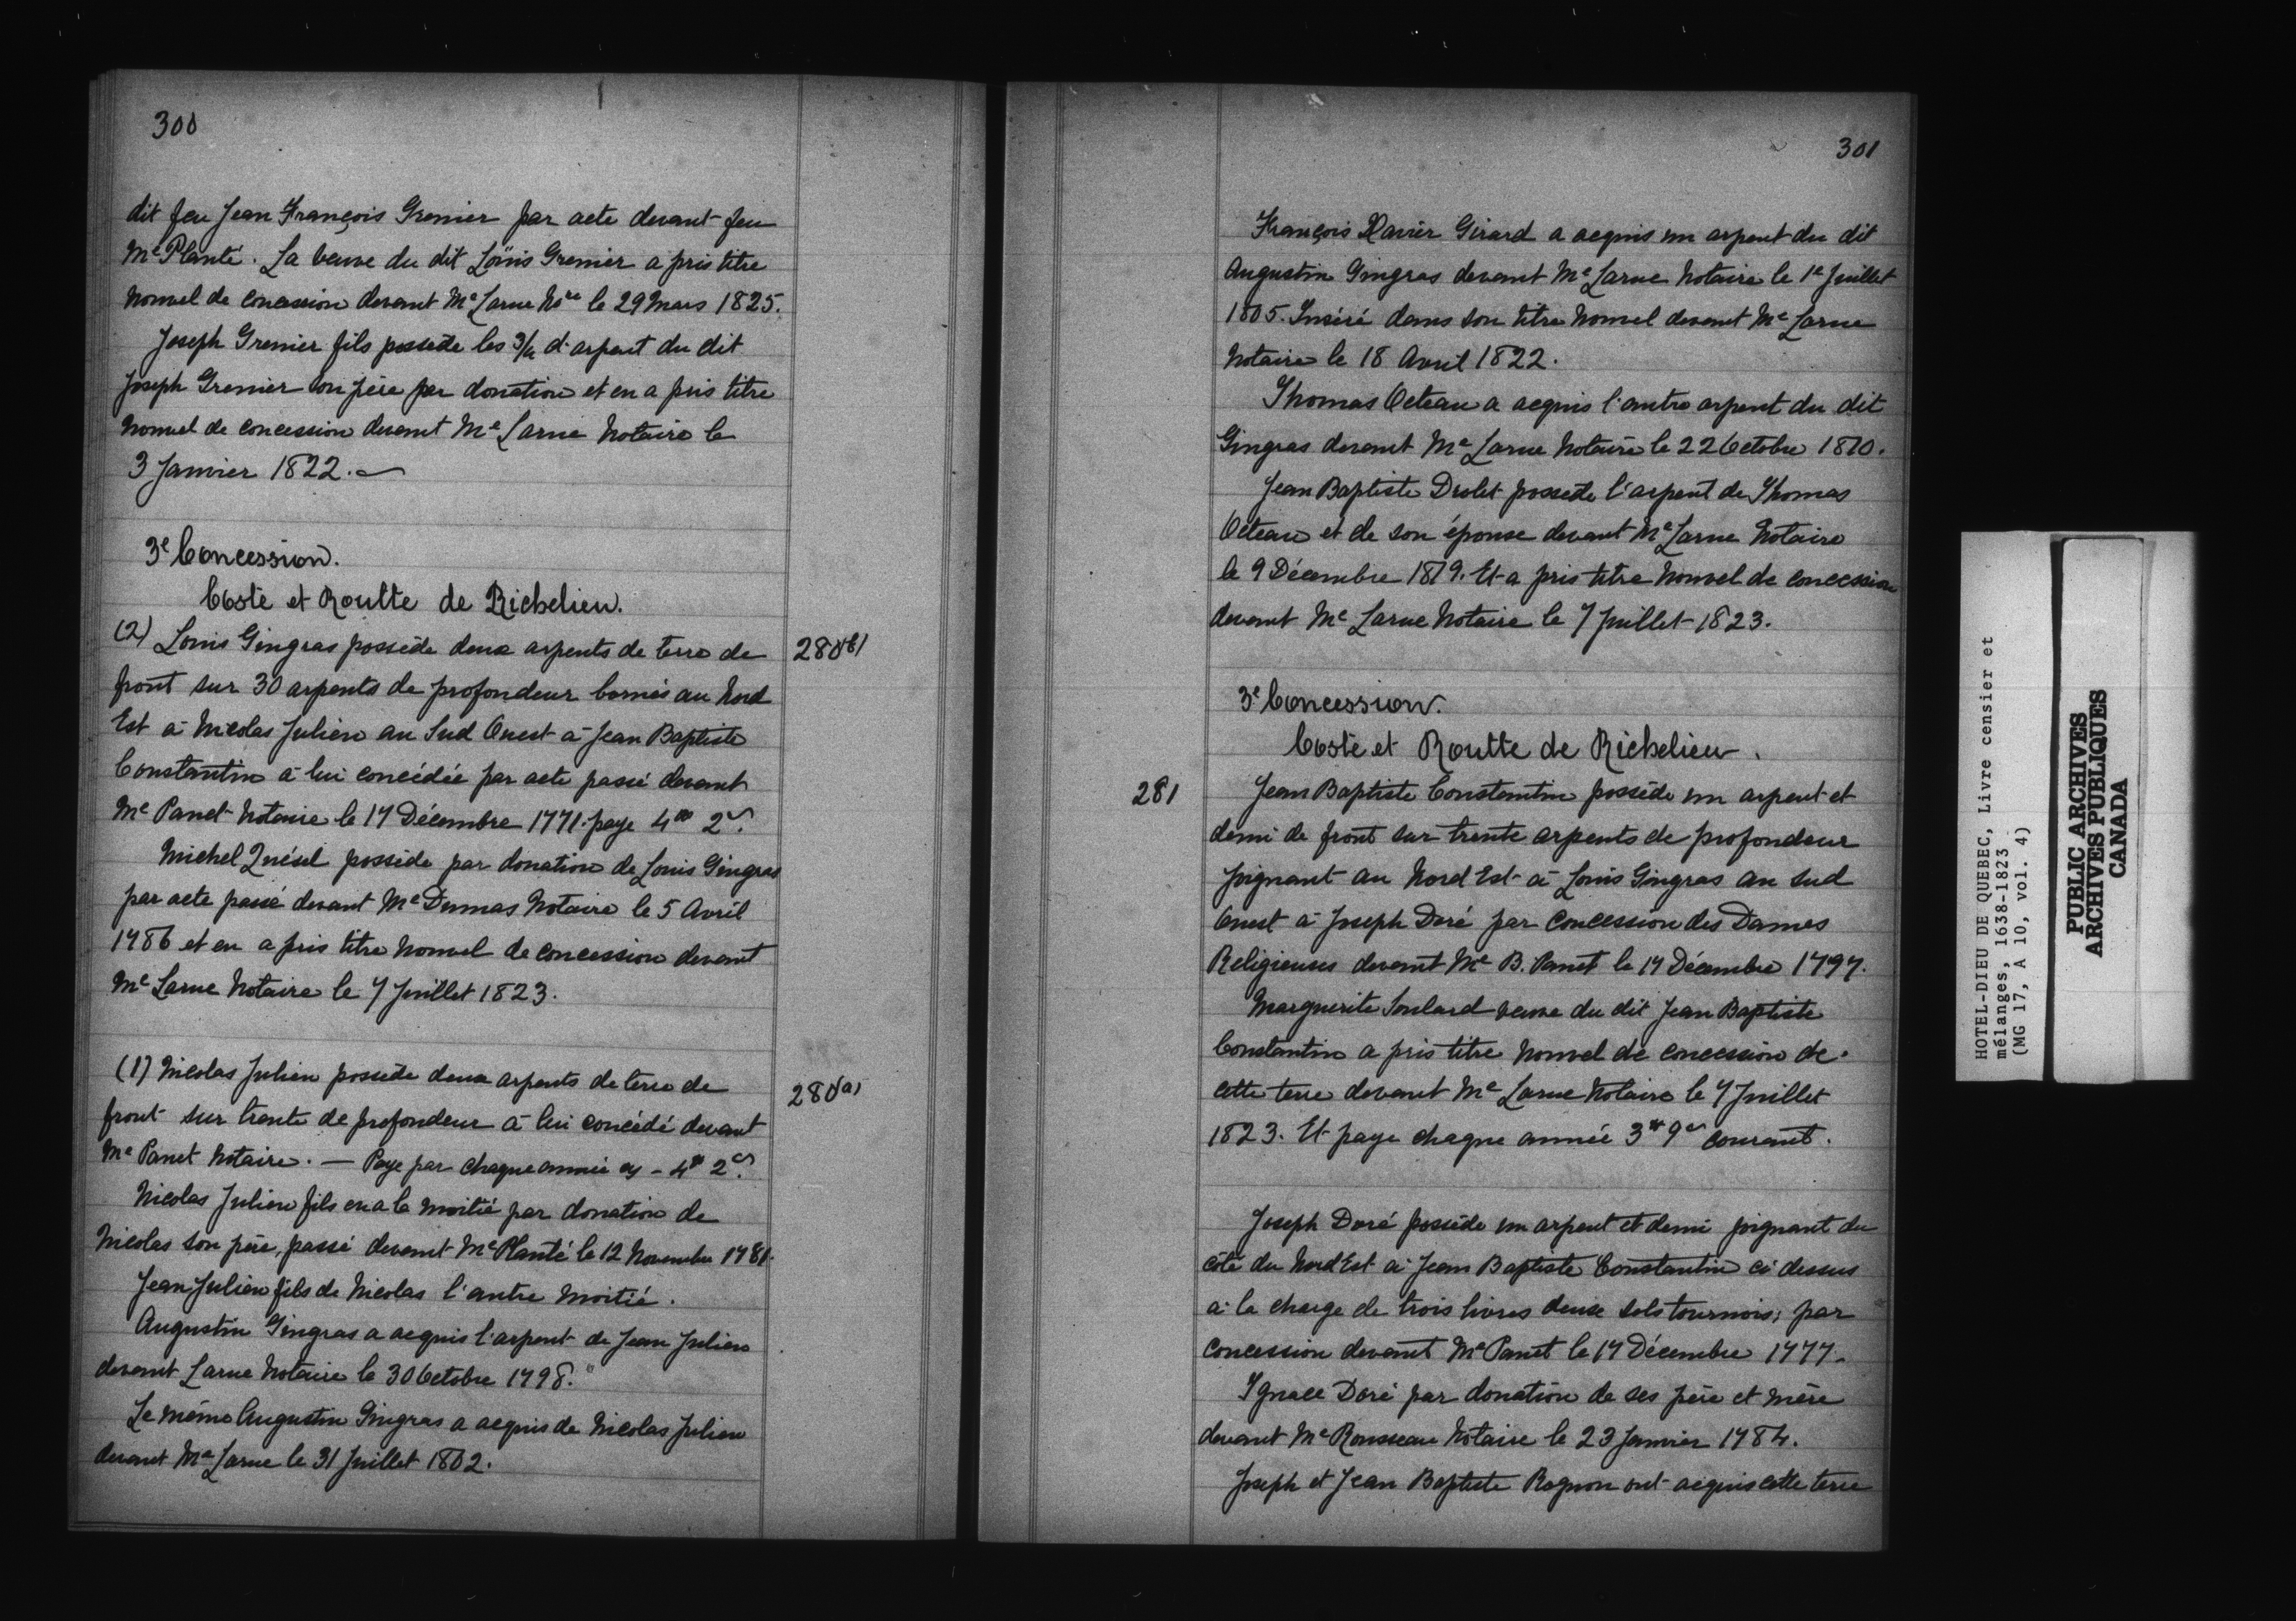 300
dit feu Jean François Grenier par acte devant feu
Me Planté. La veuve du dit Loüis Grenier a pris titre
nouvel de concession devant Me Larue Nore le 29 Mars 1825.
Joseph Grenier fils possède les 3/4 d'arpent du dit
Joseph Grenier son père par donation et en a pris titre
nouvel de concession devant Me Larue Notaire le
3 Janvier 1822.
3e Concession.
Coste et Routte de Richelieu.
(2) Louis Gingras possède deux arpents de terre de
280(b)
front sur 30 arpents de profondeur bornés au Nord
Est à Nicolas Julien au Sud Ouest à Jean Baptiste
Constantin à lui concédée par acte passé devant
Me Panet Notaire le 17 Décembre 1771. paye 4# 2s.
Michel Quésel possède par donation de Louis Gingras
par acte passé devant Me Dumas Notaire le 5 Avril
1786 et en a pris titre nouvel de concession devant
Me Larue Notaire le 7 Juillet 1823.
(1) Nicolas Julien possède deux arpents de terre de
280(a)
front sur trente de profondeur à lui concédé devant
Me Panet Notaire. — Paye par chaque année - 4# 2s.
Nicolas Julien fils en a la moitié par donation de
Nicolas son père, passé devant Me Planté le 12 Novembre 1781.
Jean Julien fils de Nicolas l'autre moitié.
Augustin Gingras a acquis l'arpent de Jean Julien
devant Larue Notaire le 30 Octobre 1798.
Le même Augustin Gingras a acquis de Nicolas Julien
devant Me Larue le 31 Juillet 1802.
301
François Xavier Girard a acquis un arpent du dit
Augustin Gingras devant Me Larue Notaire le 1e Juillet
1805. Inséré dans son titre nouvel devant Me Larue
Notaire le 18 Avril 1822.
Thomas Octeau a acquis l'autre arpent du dit
Gingras devant Me Larue Notaire le 22 Octobre 1810.
Jean Baptiste Drolet possède l'arpent de Thomas
Octeau et de son épouse devant Me Larue Notaire
le 9 Décembre 1819. Et a pris titre nouvel de concession
devant Me Larue Notaire le 7 Juillet 1823.
3e Concession.
Coste et Routte de Richelieu.
281
Jean Baptiste Constantin possède un arpent et
demi de front sur trente arpents de profondeur
joignant au Nord Est à Louis Gingras au Sud
Ouest à Joseph Doré par concession des Dames
Religieuses devant Me B. Panet le 17 Décembre 1797.
Marguerite Soulard veuve du dit Jean Baptiste
Constantin a pris titre nouvel de concession de
cette terre devant Me Larue Notaire le 7 Juillet
1823. Et paye chaque année 3# 9s courant.
Joseph Doré possède un arpent et demi joignant du
côté du Nord Est à Jean Baptiste Constantin ci dessus
à la charge de trois livres deuse sols tournois; par
concession devant Me Panet le 17 Décembre 1777.
Ignace Doré par donation de ses père et mère
devant Me Rousseau Notaire le 23 Janvier 1784.
Joseph et Jean Baptiste Rognon ont acquis cette terre
HOTEL-DIEU DE QUEBEC, Livre censier et
mélanges, 1638-1823
(MG 17, A 10, vol. 4)
PUBLIC ARCHIVES
ARCHIVES PUBLIQUES
CANADA